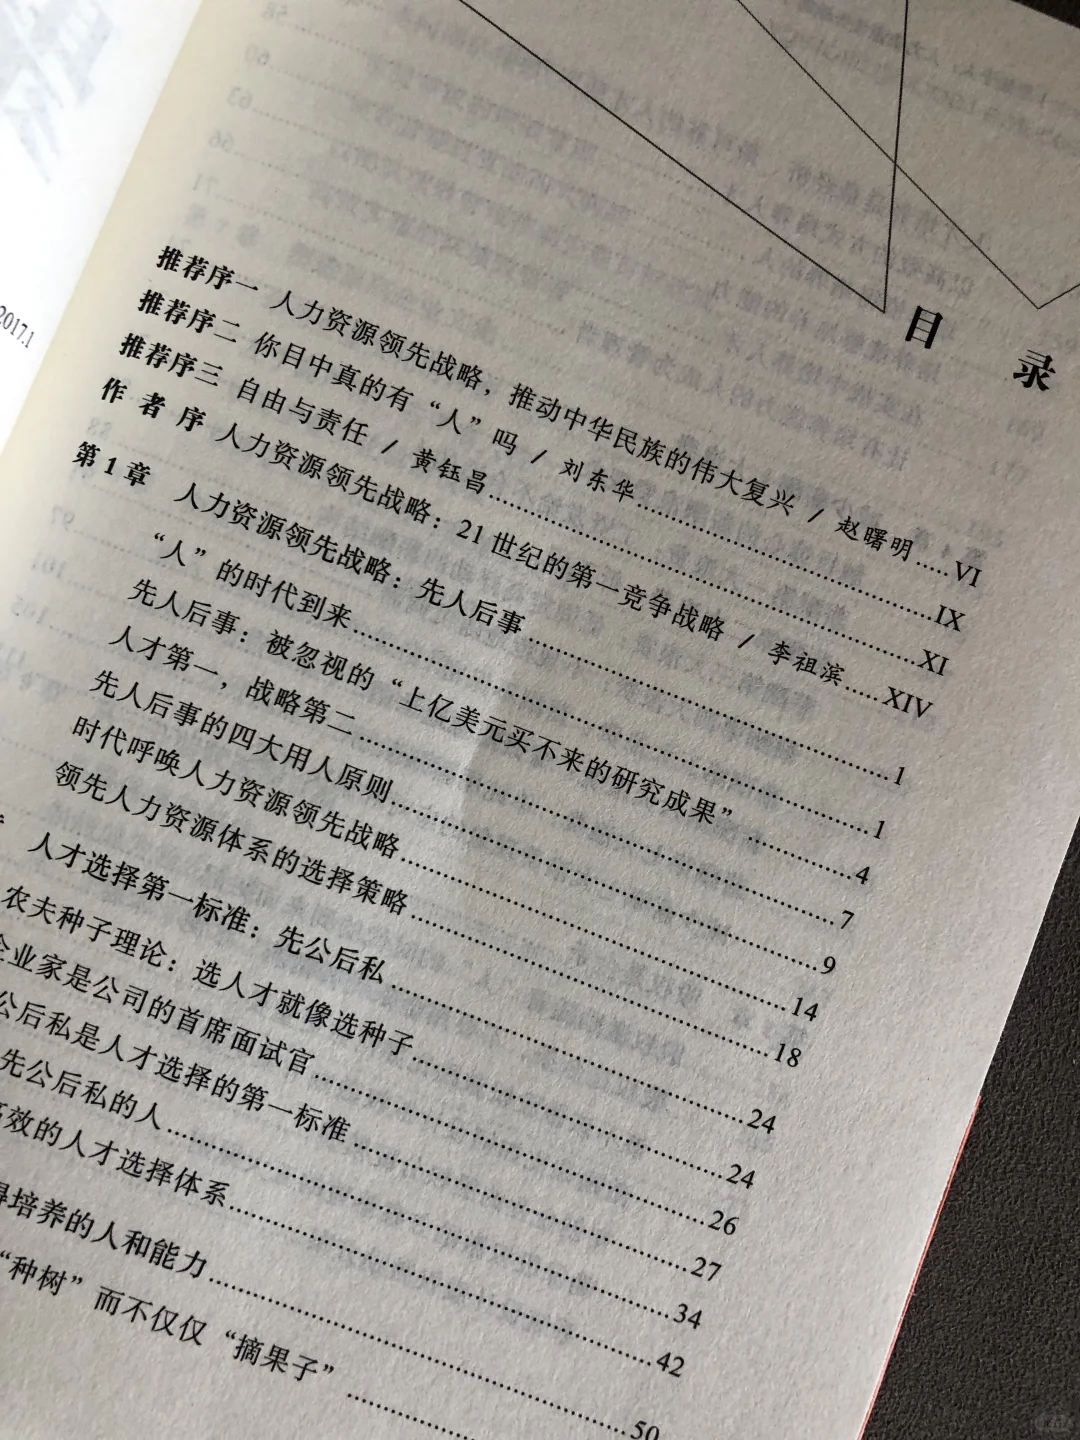 2017.1
目 录
推荐序一 人力资源领先战略，推动中华民族的伟大复兴 / 赵曙明……VI
推荐序二 你目中真的有“人”吗 / 刘东华……IX
推荐序三 自由与责任 / 黄钰昌……XI
作 者 序 人力资源领先战略：21世纪的第一竞争战略 / 李祖滨……XIV
第1章 人力资源领先战略：先人后事……1
“人”的时代到来……1
先人后事：被忽视的“上亿美元买不来的研究成果”……4
人才第一，战略第二……7
先人后事的四大用人原则……9
时代呼唤人力资源领先战略……14
领先人力资源体系的选择策略……18
人才选择第一标准：先公后私……24
农夫种子理论：选人才就像选种子……24
企业家是公司的首席面试官……26
公后私是人才选择的第一标准……27
先公后私的人……34
高效的人才选择体系……42
得培养的人和能力……50
“种树”而不仅仅“摘果子”……